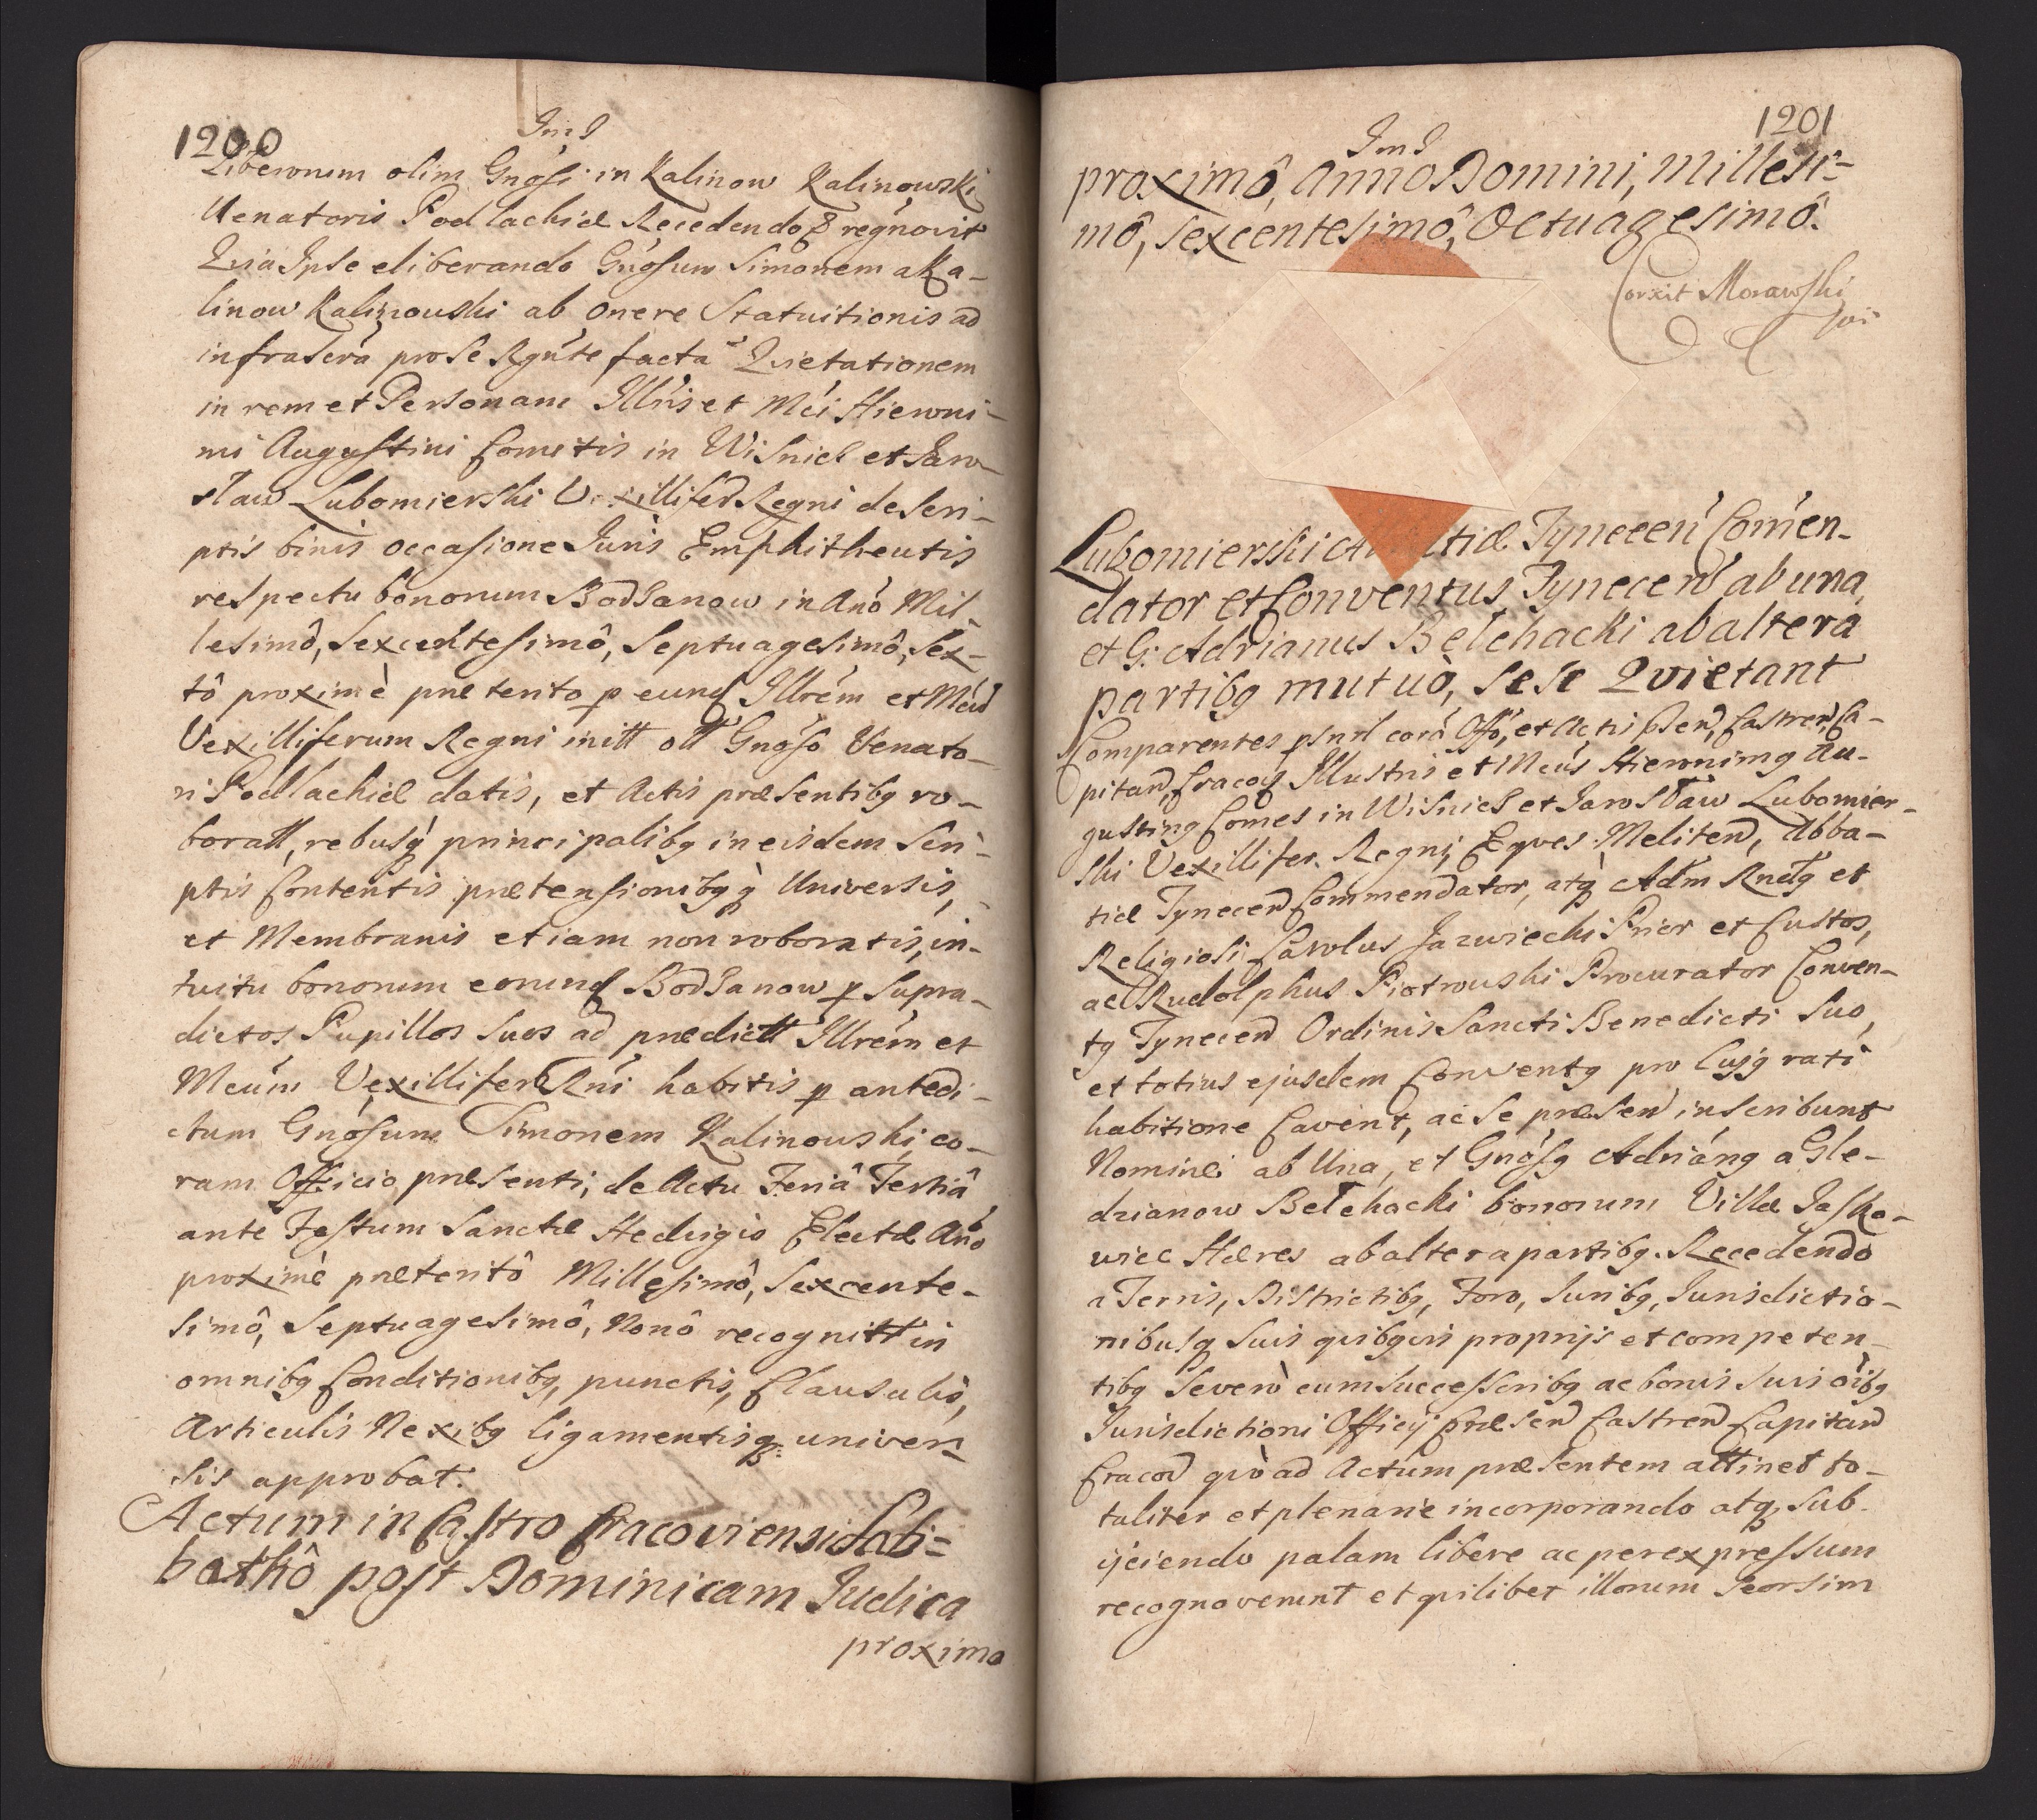 1200
Liberorum olim Gnosi in Kalinow Kalinowski
Venatoris Podlachiæ Recedendo regnovit
Quia Ipse eliberando Gnosum Simonem a Ka-
linow Kalinowski ab onere Statuitionis ad
infrascra pro se Rgnte factâ Quietationem
in rem et Personam Illris et Mci Hieroni-
mi Augustini Comitis in Wisnicz et Jaro-
sław Lubomierski Vexilliferi Regni de scri-
ptis binis occasione Juris Emphitheutis
respectu bonorum Bodzanow in Ano Mil-
lesimô, Sexcentesimô, Septuagesimô, Sex-
tô proximè præterito p eund Illrem et Mcum
Vexilliferum Regni initt olt Gnoso Venato-
ri Podlachiæ datis, et Actis præsentibq ro-
boratt, rebusq principalibq in eisdem Scri-
ptis Contentis prætensionibq q Universis,
et Membranis etiam non roboratis, in-
tuitu bonorum eorund Bodzanow p supra-
dictos Pupillos suos ad prædictt Illrem et
Mcum Vexilliferu Rni habitis p antedi-
ctum Gnosum Simonem Kalinowski, co-
ram Officio præsenti, de Actu Feriâ Tertiâ
ante Festum Sanctæ Hedvigis Electæ Ano
proximè præteritô Millesimô, Sexcente-
simô, Septuagesimô, Nonô recognitt in
omnibq Conditionibq, punctis, Clausulis,
Articulis Nexibq ligamentisq univer-
sis approbat.
Actum in Castro Cracoviensi Sab-
bathô post Dominicam Judica
proximo
1201
proximô, Anno Domini, Millesi-
mô, Sexcentesimô, Octuagesimô.
Corxit Morawski
Lubomierski tiæ Tynecen Comen-
dator et Conventus Tynecen ab una,
et G: Adrianus Bełchacki ab altera
partibq mutuò, sese Quietant
Comparentes psnrl corâ Offo, et Actis psen, Castren, Ca-
pitan, Cracov Illustris et Mcus Hieronimq Au-
gustinq Comes in Wisnicz et Jarosław Lubomier-
ski Vexillifer. Regni, Eqves Meliten, Abba-
tiæ Tynecen Commendator, atq Adm Rndq et
Religiosi Carolus Jazwiecki Prior et Custos,
ac Rudolphus Piotrowski Procurator Conven-
tq Tynecen Ordinis Sancti Benedicti suo,
et totius ejusdem Conventq pro cujq rati
habitione Cavent, ac se præsen inscribunt
Nominei ab Una, et Gnosq Adrianq a Gle-
dzianow Bełchacki bonorum Villæ Jasko-
wice Hæres ab altera partibq. Recedendo
a Terris, Districtibq, Foro, Juribq, Jurisdictio-
nibusq suis quibqvis proprijs et competen-
tibq Severò cum successoribq ac bonis suis oibq
Jurisdictioni Officij Præsen Castren Capitan
Cracov quò ad Actum præsentem attinet to-
taliter et plenarie incorporando atq sub-
ijciendo palam libere ac per expressum
recognoverunt et quilibet illorum seorsim